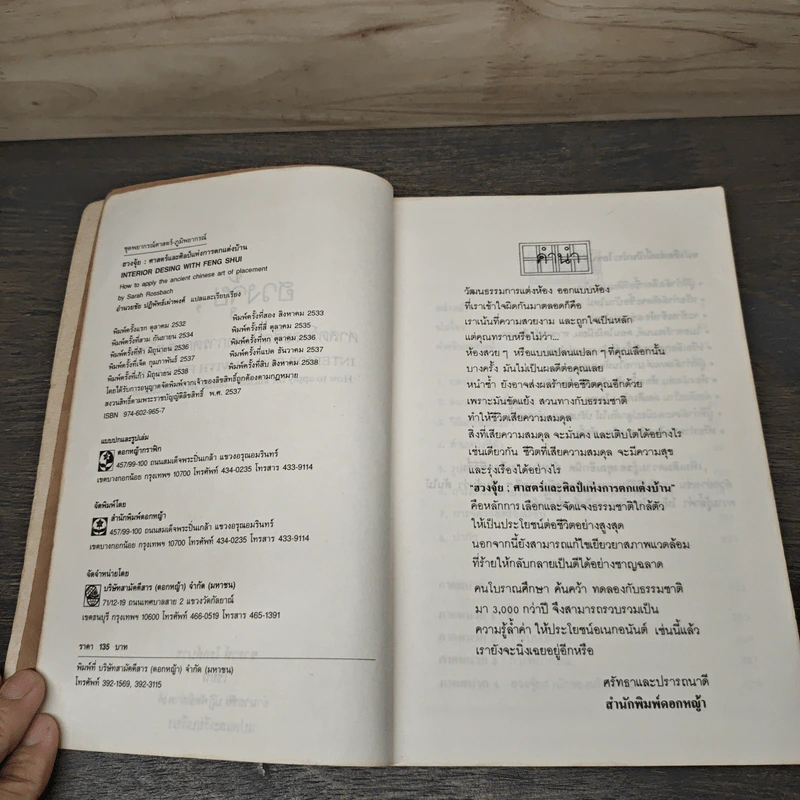 ชุดพยากรณ์ศาสตร์-ภูมิพยากรณ์
ฮวงจุ้ย : ศาสตร์และศิลป์แห่งการตกแต่งบ้าน
INTERIOR DESING WITH FENG SHUI
How to apply the ancient chinese art of placement
by Sarah Rossbach
อำนวยชัย ปฏิพัทธ์เผ่าพงศ์ แปลและเรียบเรียง
พิมพ์ครั้งแรก ตุลาคม 2532 พิมพ์ครั้งที่สอง สิงหาคม 2533
พิมพ์ครั้งที่สาม กันยายน 2534 พิมพ์ครั้งที่สี่ ตุลาคม 2535
พิมพ์ครั้งที่ห้า มิถุนายน 2536 พิมพ์ครั้งที่หก ตุลาคม 2536
พิมพ์ครั้งที่เจ็ด กุมภาพันธ์ 2537 พิมพ์ครั้งที่แปด ธันวาคม 2537
พิมพ์ครั้งที่เก้า มิถุนายน 2538 พิมพ์ครั้งที่สิบ สิงหาคม 2538
โดยได้รับการอนุญาตจัดพิมพ์จากเจ้าของลิขสิทธิ์ถูกต้องตามกฎหมาย
สงวนลิขสิทธิ์ตามพระราชบัญญัติลิขสิทธิ์ พ.ศ. 2537
ISBN 974-602-965-7
แบบปกและรูปเล่ม
ดอกหญ้ากราฟิก
457/99-100 ถนนสมเด็จพระปิ่นเกล้า แขวงอรุณอมรินทร์
เขตบางกอกน้อย กรุงเทพฯ 10700 โทรศัพท์ 434-0235 โทรสาร 433-9114
จัดพิมพ์โดย
สำนักพิมพ์ดอกหญ้า
457/99-100 ถนนสมเด็จพระปิ่นเกล้า แขวงอรุณอมรินทร์
เขตบางกอกน้อย กรุงเทพฯ 10700 โทรศัพท์ 434-0235 โทรสาร 433-9114
จัดจำหน่ายโดย
บริษัทสามัคคีสาร (ดอกหญ้า) จำกัด (มหาชน)
71/12-19 ถนนเทศบาลสาย 2 แขวงวัดกัลยาณ์
เขตธนบุรี กรุงเทพฯ 10600 โทรศัพท์ 466-0519 โทรสาร 465-1391
ราคา 135 บาท
พิมพ์ที่ บริษัทสามัคคีสาร (ดอกหญ้า) จำกัด (มหาชน)
โทรศัพท์ 392-1569, 392-3115
คำนำ
วัฒนธรรมการแต่งห้อง ออกแบบห้อง
ที่เราเข้าใจผิดกันมาตลอดก็คือ
เราเน้นที่ความสวยงาม และถูกใจเป็นหลัก
แต่คุณทราบหรือไม่ว่า...
ห้องสวย ๆ หรือแบบแปลนแปลก ๆ ที่คุณเลือกนั้น
บางครั้ง มันไม่เป็นผลดีต่อคุณเลย
หนำซ้ำ ยังอาจส่งผลร้ายต่อชีวิตคุณอีกด้วย
เพราะมันขัดแย้ง สวนทางกับธรรมชาติ
ทำให้ชีวิตเสียความสมดุล
สิ่งที่เสียความสมดุล จะมั่นคง และเติบโตได้อย่างไร
เช่นเดียวกัน ชีวิตที่เสียความสมดุล จะมีความสุข
และรุ่งเรืองได้อย่างไร
"ฮวงจุ้ย : ศาสตร์และศิลป์แห่งการตกแต่งบ้าน"
คือหลักการ เลือกและจัดแจงธรรมชาติใกล้ตัว
ให้เป็นประโยชน์ต่อชีวิตอย่างสูงสุด
นอกจากนี้ยังสามารถแก้ไขเยียวยาสภาพแวดล้อม
ที่ร้ายให้กลับกลายเป็นดีได้อย่างชาญฉลาด
คนโบราณศึกษา ค้นคว้า ทดลองกับธรรมชาติ
มา 3,000 กว่าปี จึงสามารถรวบรวมเป็น
ความรู้ล้ำค่า ให้ประโยชน์อเนกอนันต์ เช่นนี้แล้ว
เรายังจะนิ่งเฉยอยู่อีกหรือ
ศรัทธาและปรารถนาดี
สำนักพิมพ์ดอกหญ้า